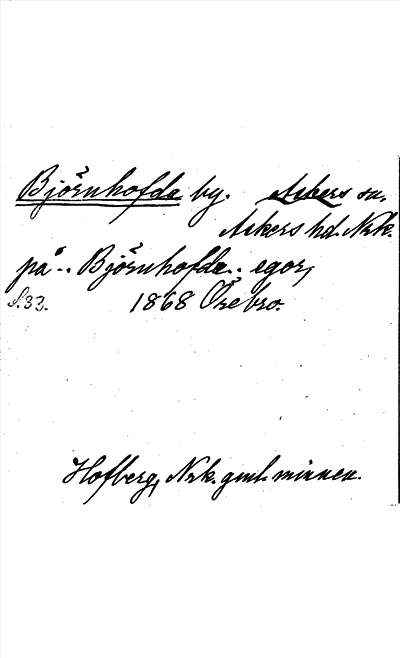 Björnhofda by. Askers sn.
Askers hd. Nrk.
på .. Björnhofda .. egor,
S.33. 1868 Örebro.
Hofberg, Nrk. gml. minnen.